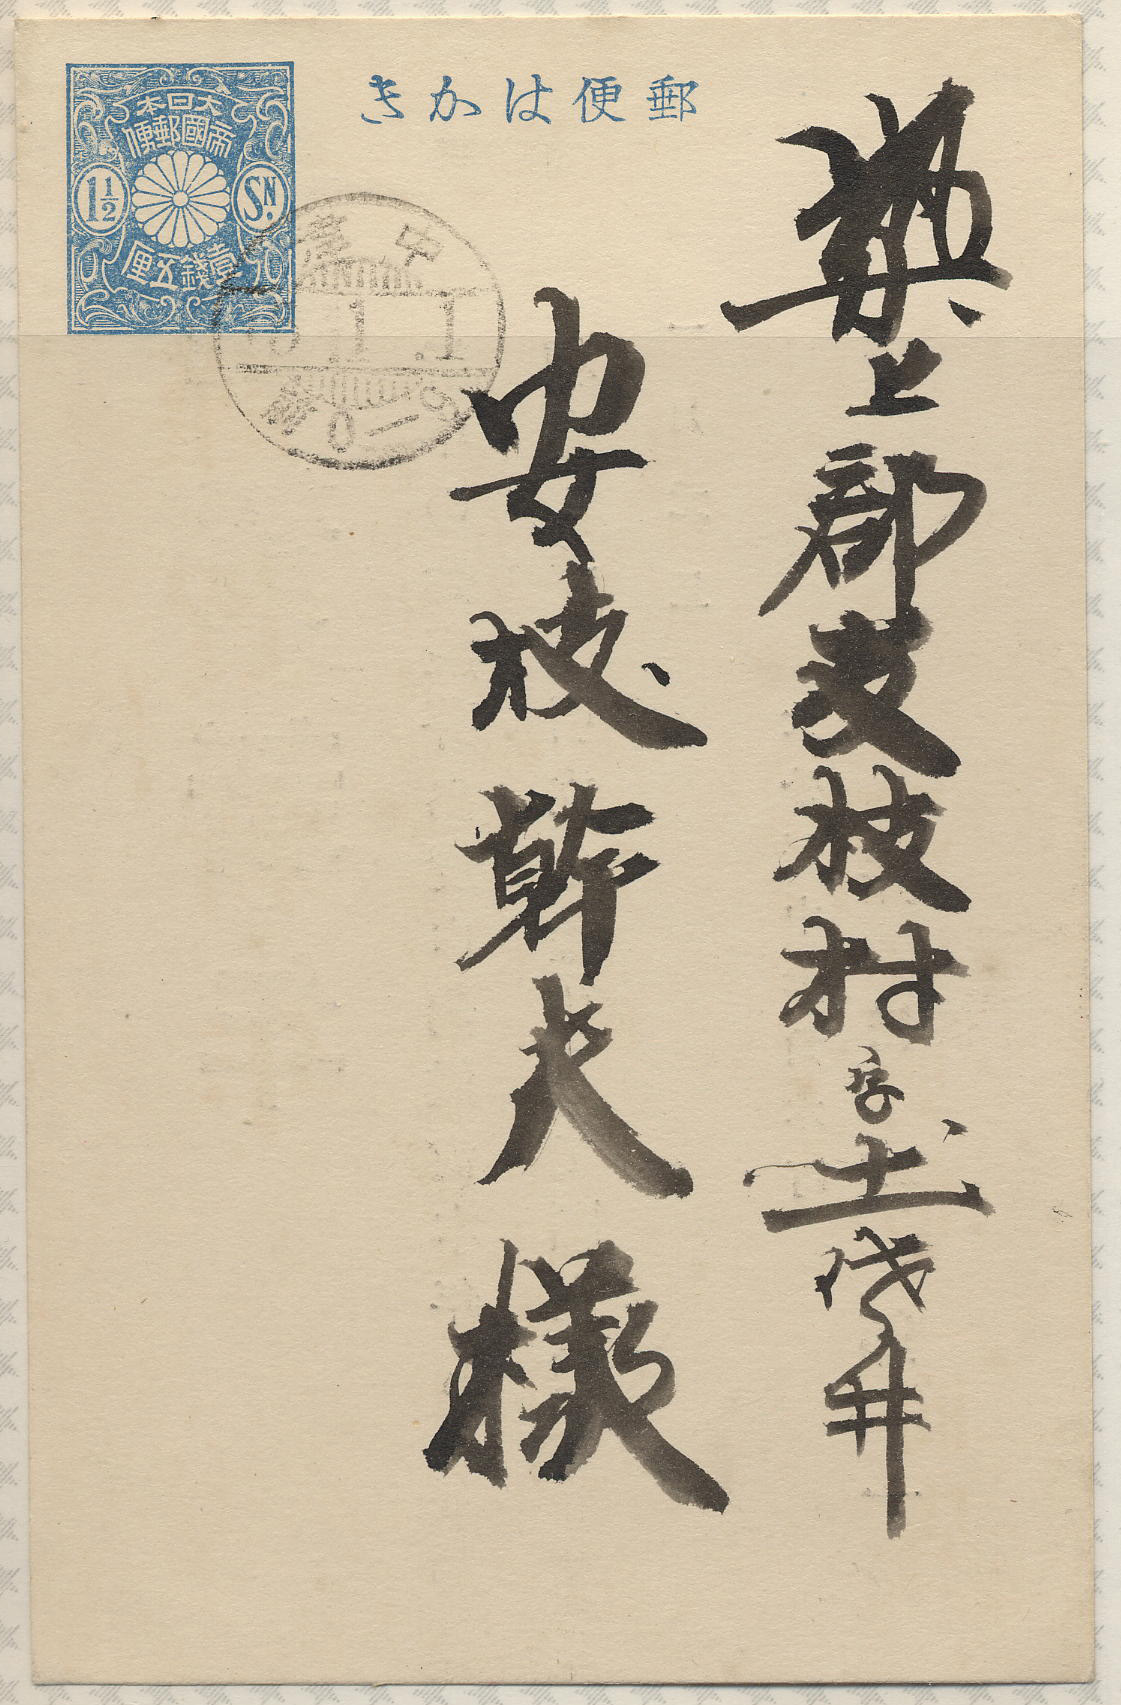 郵便はかき
大日本
帝國郵便
1½ SN.
壹錢五厘
築上郡友枝村字土佐井
安枝幹夫様